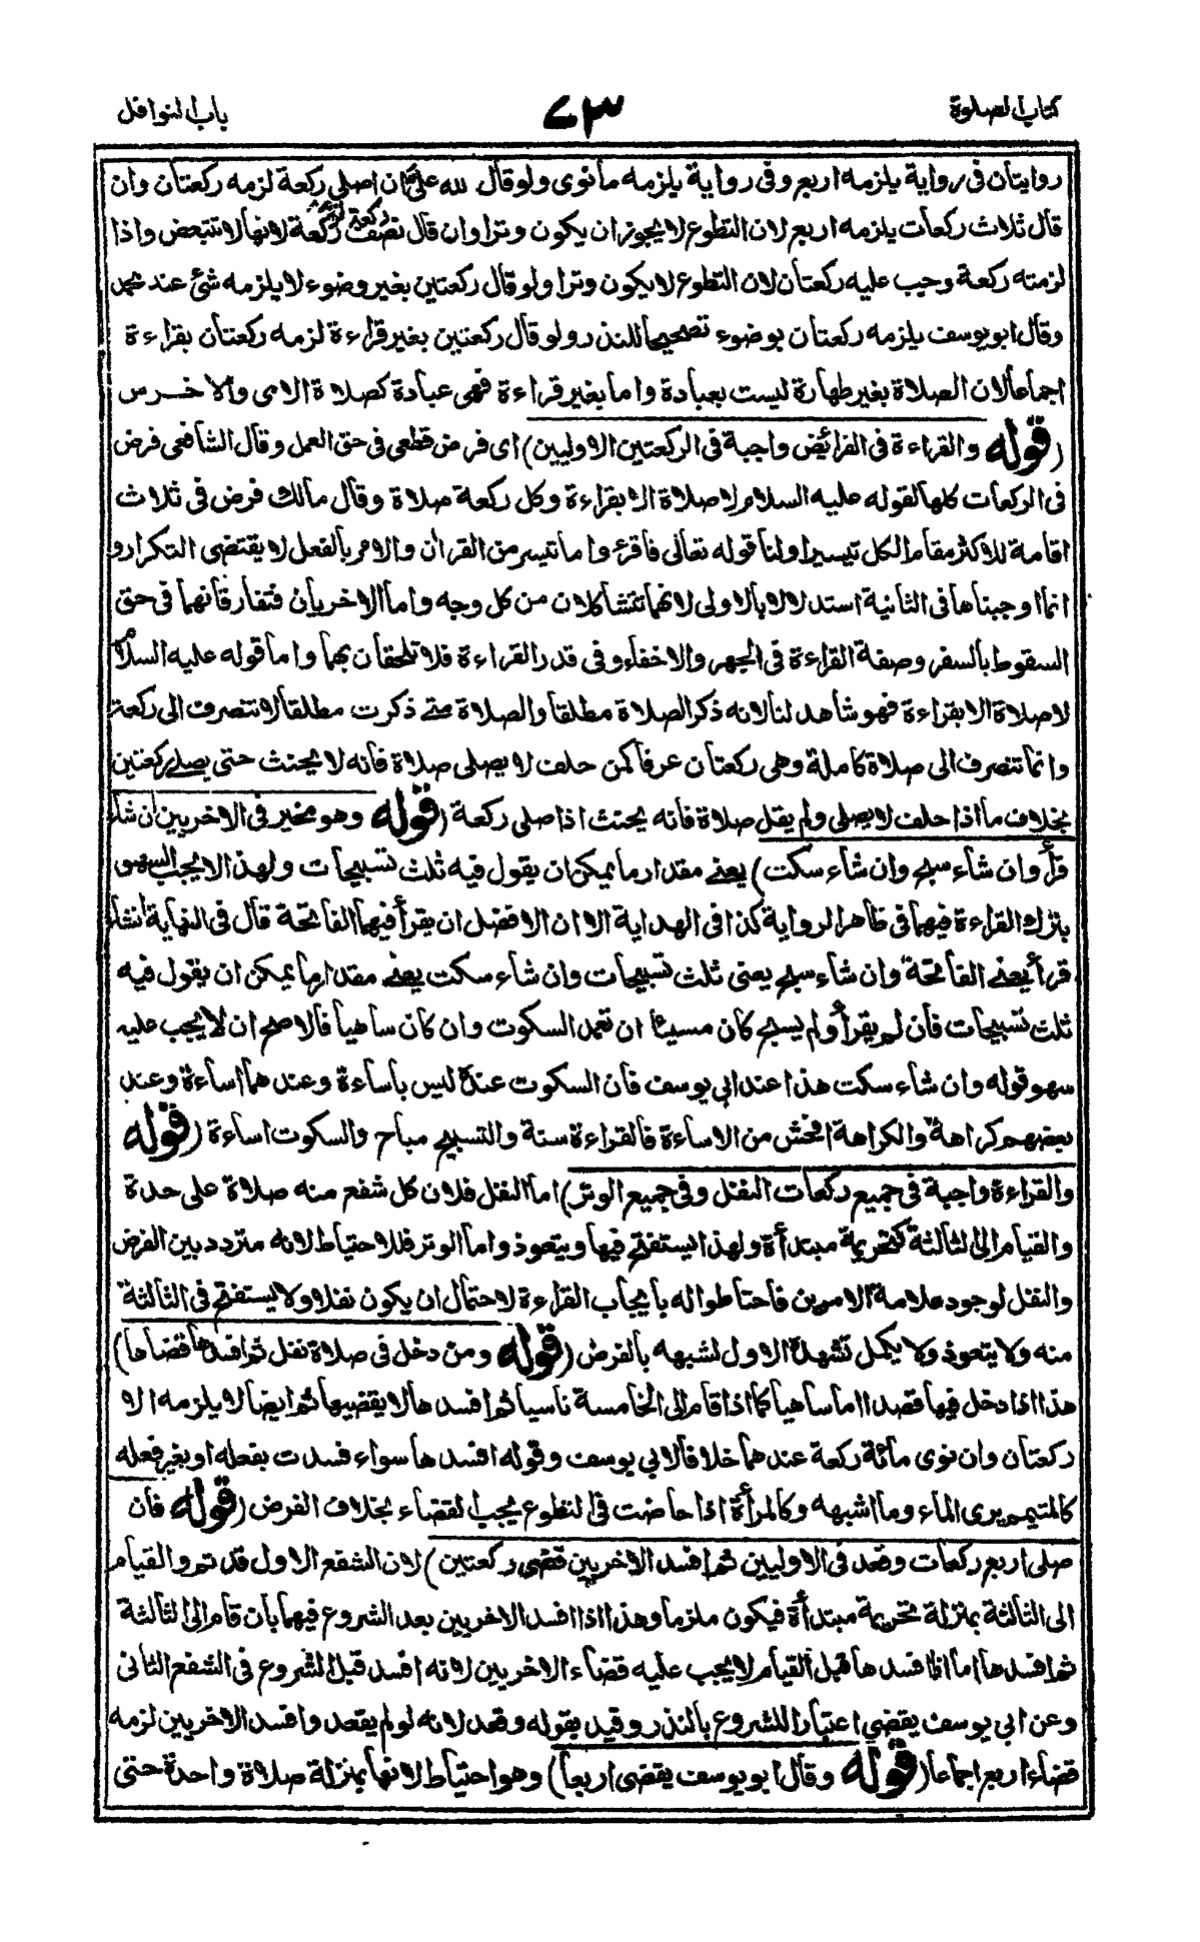 كتاب الصلوة
٧٣
باب النوافل
روايتان فى رواية يلزمه اربع وفى رواية يلزمه ما نوى ولو قال لله علىّ ان اصلى ركعة لزمه ركعتان وان
قال ثلاث ركعات يلزمه اربع لان التطوع لا يجوز ان يكون وترا وان قال نصف ركعة لزمه ركعة لانها لا تتبعض واذا
لزمته ركعة وجب عليه ركعتان لان التطوع لا يكون وترا ولو قال ركعتين بغير وضوء لا يلزمه شئ عند محمد
وقال ابو يوسف يلزمه ركعتان بوضوء تصحيحا للنذر ولو قال ركعتين بغير قراءة لزمه ركعتان بقراءة
اجماعا لان الصلاة بغير طهارة ليست بعبادة واما بغير قراءة فهى عبادة كصلاة الامى والاخرس
(قوله والقراءة فى الفرائض واجبة فى الركعتين الاوليين) اى فرض قطعى فى حق العمل وقال الشافعى فرض
فى الركعات كلها لقوله عليه السلام لا صلاة الا بقراءة وكل ركعة صلاة وقال مالك فرض فى ثلاث
اقامة للاكثر مقام الكل تيسيرا ولنا قوله تعالى فاقرءوا ما تيسر من القرآن والامر بالفعل لا يقتضى التكرار و
انما اوجبناها فى الثانية استدلالا بالاولى لانهما تتشاكلان من كل وجه واما الاخريان فتفارقانهما فى حق
السقوط بالسفر وصفة القراءة فى الجهر والاخفاء وفى قدر القراءة فلا تلحقان بهما واما قوله عليه السلام
لا صلاة الا بقراءة فهو شاهد لنا لانه ذكر الصلاة مطلقا والصلاة متى ذكرت مطلقا لا تنصرف الى ركعة
وانما تنصرف الى صلاة كاملة وهى ركعتان عرفا كمن حلف لا يصلى صلاة فانه لا يحنث حتى يصلى ركعتين
بخلاف ما اذا حلف لا يصلى ولم يقل صلاة فانه يحنث اذا صلى ركعة (قوله وهو مخير فى الاخريين ان شاء
قرأ وان شاء سبح وان شاء سكت) يعنى مقدار ما يمكن ان يقول فيه ثلث تسبيحات ولهذا لا يجب السهو
بترك القراءة فيهما فى ظاهر الرواية كذا فى الهداية الا ان الافضل ان يقرأ فيهما الفاتحة قال فى النهاية ان شاء
قرأ يعنى الفاتحة وان شاء سبح يعنى ثلث تسبيحات وان شاء سكت يعنى مقدار ما يمكن ان يقول فيه
ثلث تسبيحات فان لم يقرأ ولم يسبح كان مسيئا ان تعمد السكوت وان كان ساهيا فالاصح ان لا يجب عليه
سهو قوله وان شاء سكت هذا عند ابى يوسف فان السكوت عنده ليس باساءة وعندهما اساءة وعند
بعضهم كراهة والكراهة افحش من الاساءة فالقراءة سنة والتسبيح مباح والسكوت اساءة (قوله
والقراءة واجبة فى جميع ركعات النفل وفى جميع الوتر) اما النفل فلان كل شفع منه صلاة على حدة
والقيام الى الثالثة كتحريمة مبتدأة ولهذا يستفتح فيها ويتعوذ واما الوتر فللاحتياط لانه متردد بين الفرض
والنفل لوجود علامة الامرين فاحتاطوا له بايجاب القراءة لاحتمال ان يكون نفلا ولا يستفتح فى الثالثة
منه ولا يتعوذ ولا يكمل تشهده الاول لشبهه بالفرض (قوله ومن دخل فى صلاة نفل ثم افسدها قضاها)
هذا اذا دخل فيها قصدا اما ساهيا كما اذا قام الى الخامسة ناسيا ثم افسدها لا يقضيها ثم ايضا لا يلزمه الا
ركعتان وان نوى مائة ركعة عندهما خلافا لابى يوسف وقوله افسدها سواء فسدت بفعله او بغير فعله
كالمتيمم يرى الماء وما اشبهه وكالمرأة اذا حاضت فى التطوع يجب القضاء بخلاف الفرض (قوله فان
صلى اربع ركعات وقعد فى الاوليين ثم افسد الاخريين قضى ركعتين) لان الشفع الاول قد تم والقيام
الى الثالثة بمنزلة تحريمة مبتدأة فيكون ملزما وهذا اذا افسد الاخريين بعد الشروع فيهما بان قام الى الثالثة
ثم افسدها اما اذا افسدها قبل القيام لا يجب عليه قضاء الاخريين لانه افسد قبل الشروع فى الشفع الثانى
وعن ابى يوسف يقضى اعتبارا للشروع بالنذر وقيد بقوله وقعد لانه لو لم يقعد وافسد الاخريين لزمه
قضاء اربع اجماعا (قوله وقال ابو يوسف يقضى اربعا) وهو احتياط لانها بمنزلة صلاة واحدة حتى